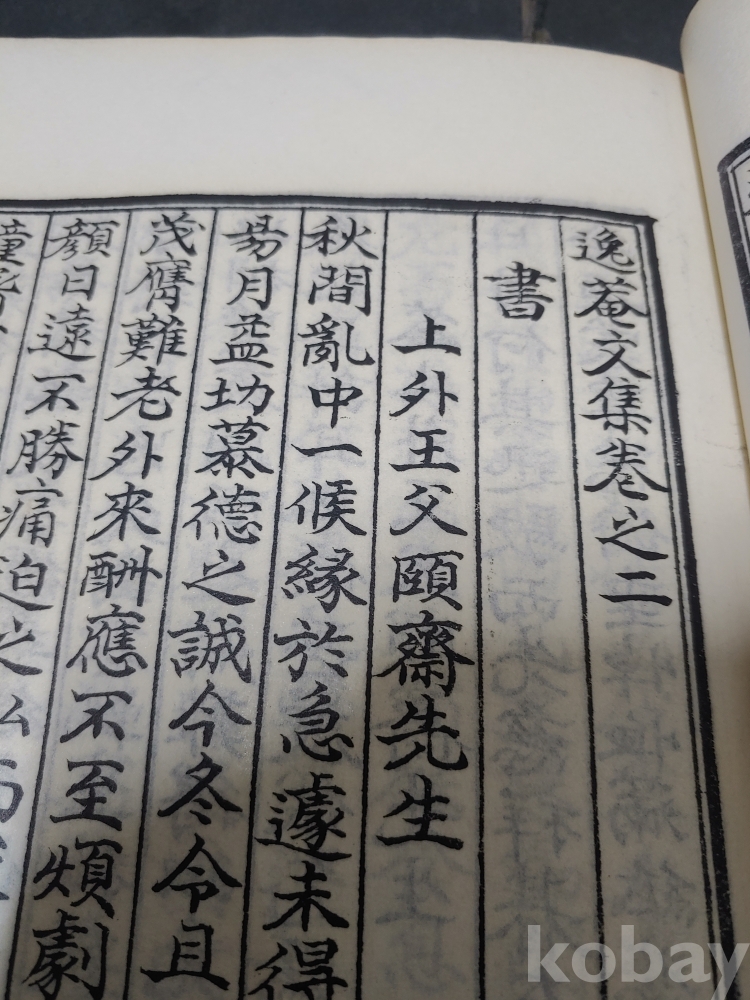 逸菴文集卷之二
書
上外王父頤齋先生
秋間亂中一候緣於急遽未得
昜月益切慕德之誠今冬令且
茂膺難老外來酬應不至煩劇
顔日遠不勝痛迫之私
kobay